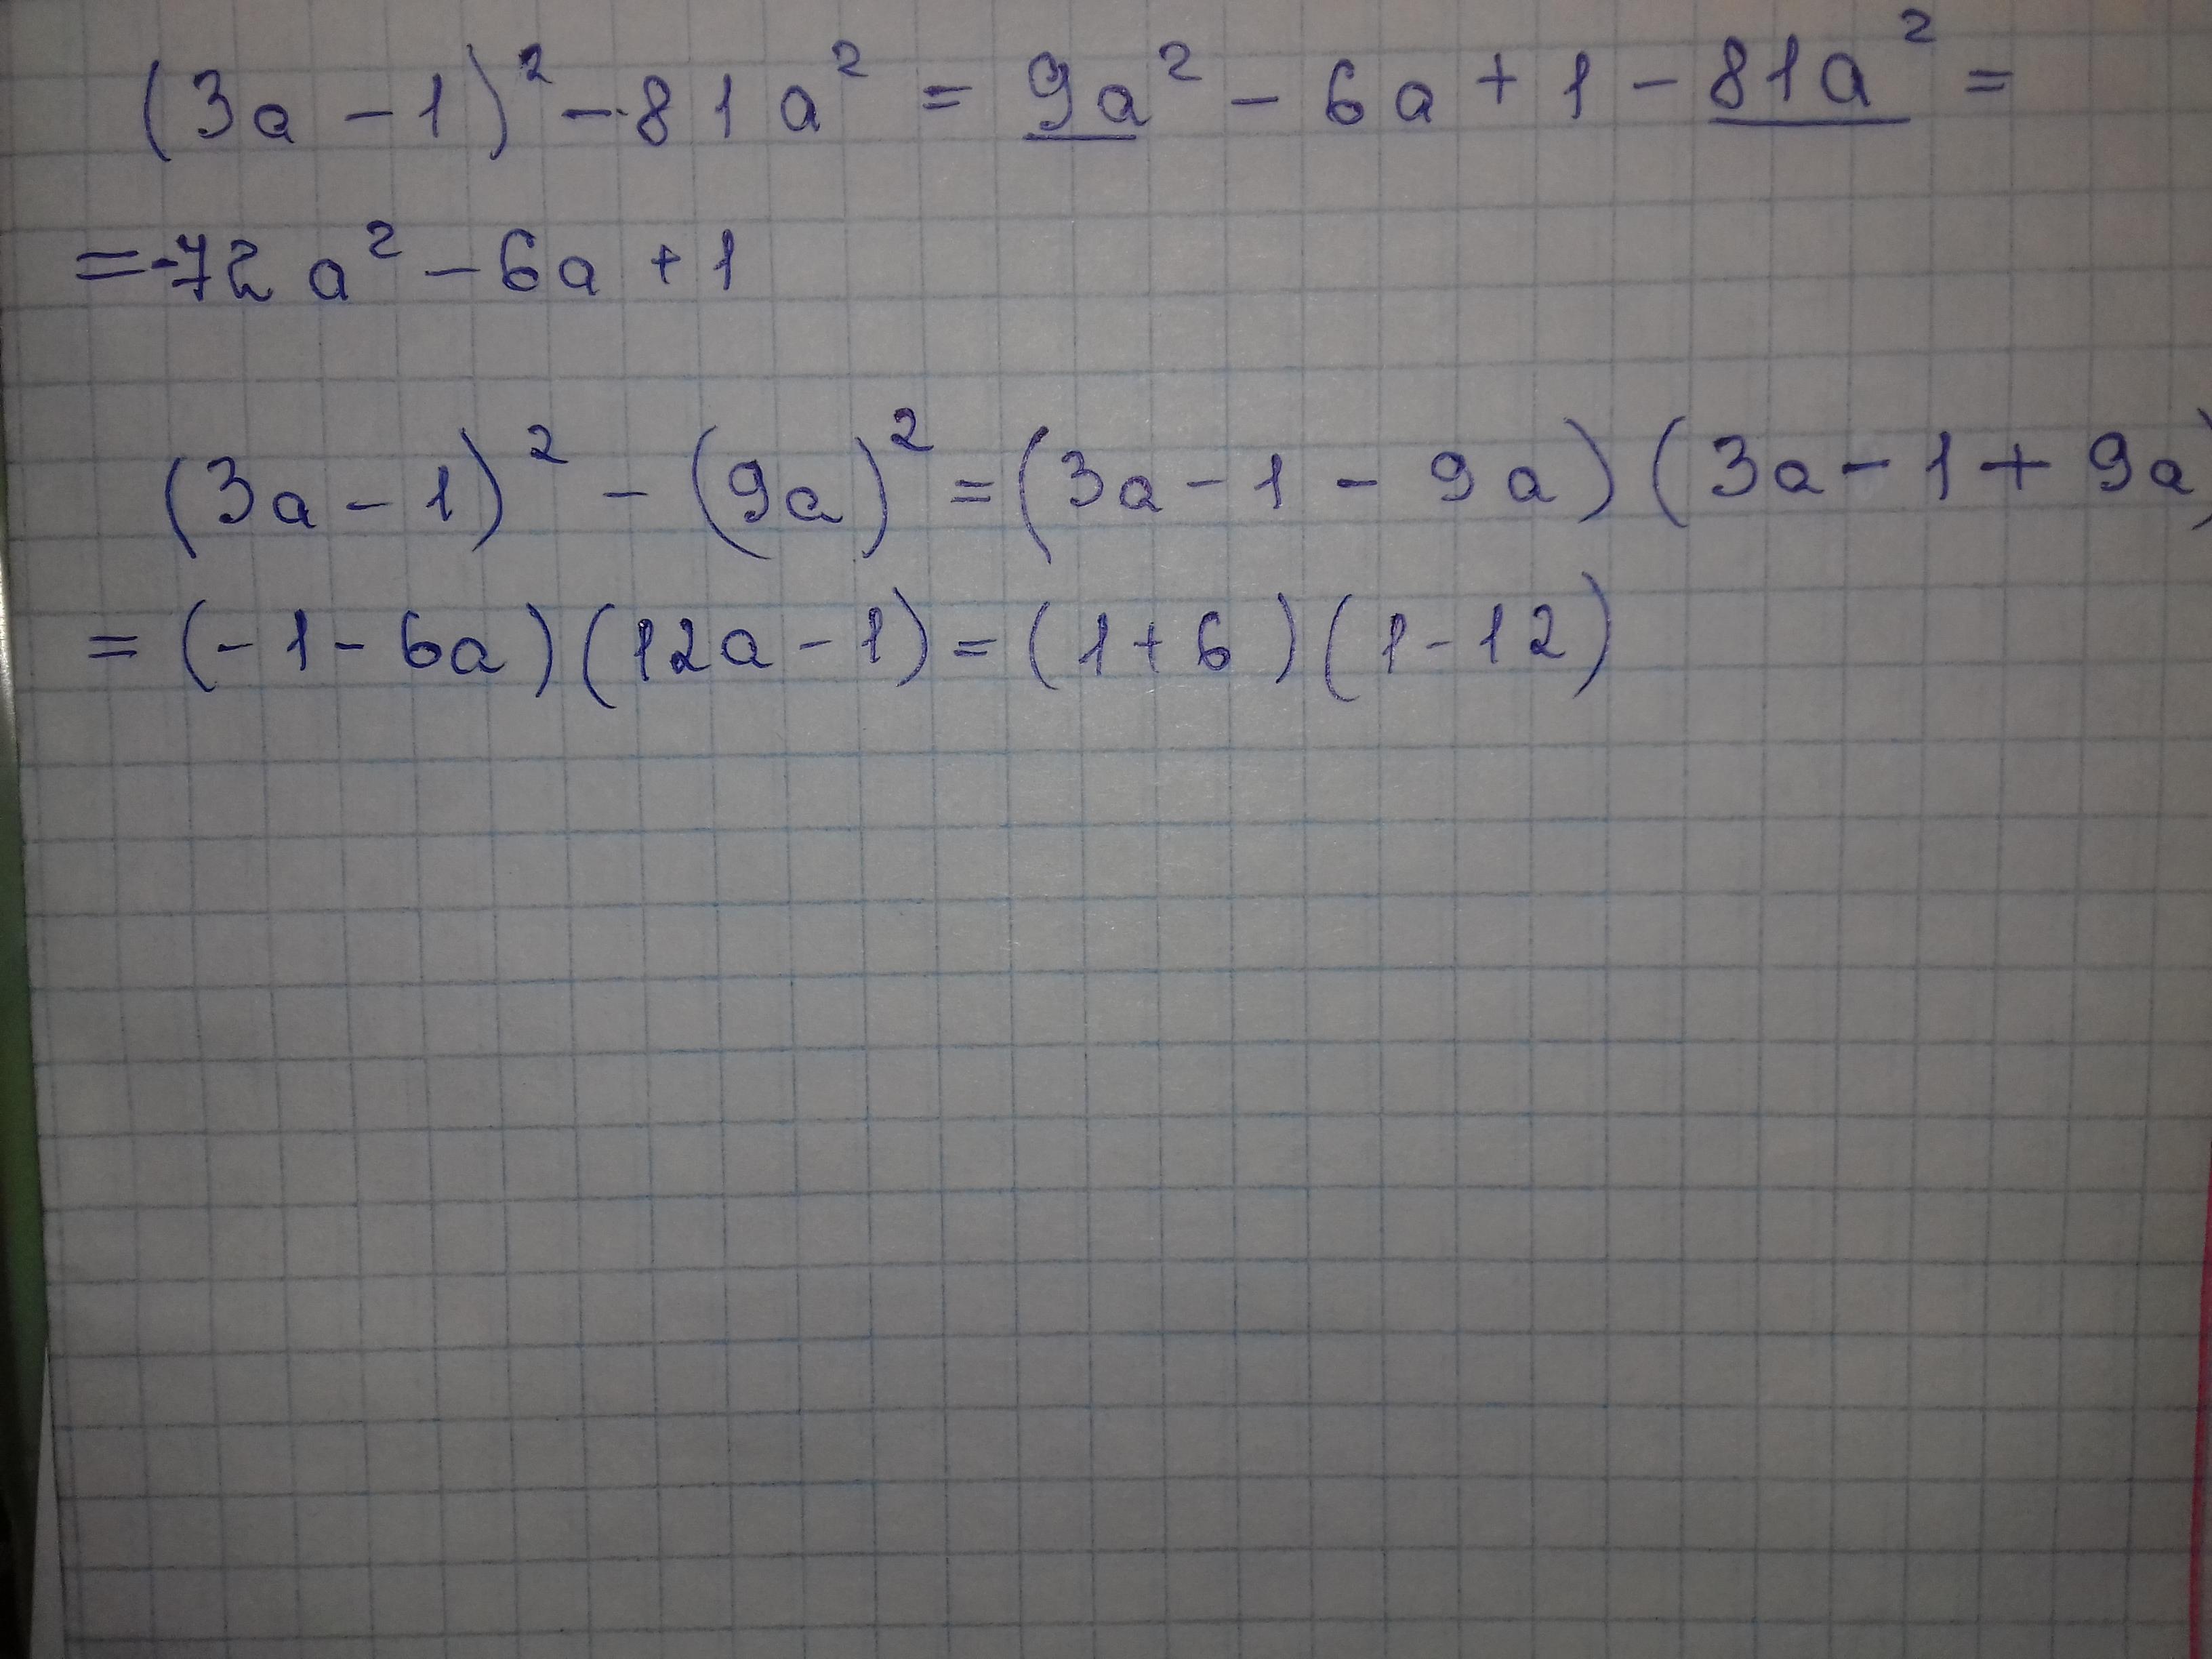 (3a - 1)² - 81a² = 9a² - 6a + 1 - 81a² =
= -72a² - 6a + 1
(3a - 1)² - (9a)² = (3a - 1 - 9a)(3a - 1 + 9a)
= (-1 - 6a)(12a - 1) = (1 + 6)(1 - 12)